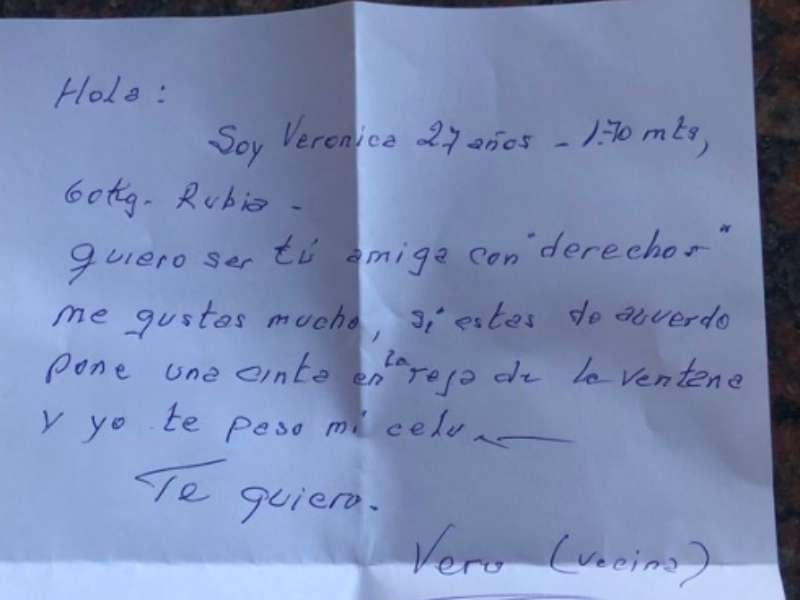 Hola:
Soy Veronica 27 años - 1.70 mts,
60kg. Rubia -
quiero ser tú amiga con "derechos"
me gustas mucho, si estas de acuerdo
pone una cinta en la reja de la ventana
y yo te paso mi celu.
Te quiero.
Vero (vecina)